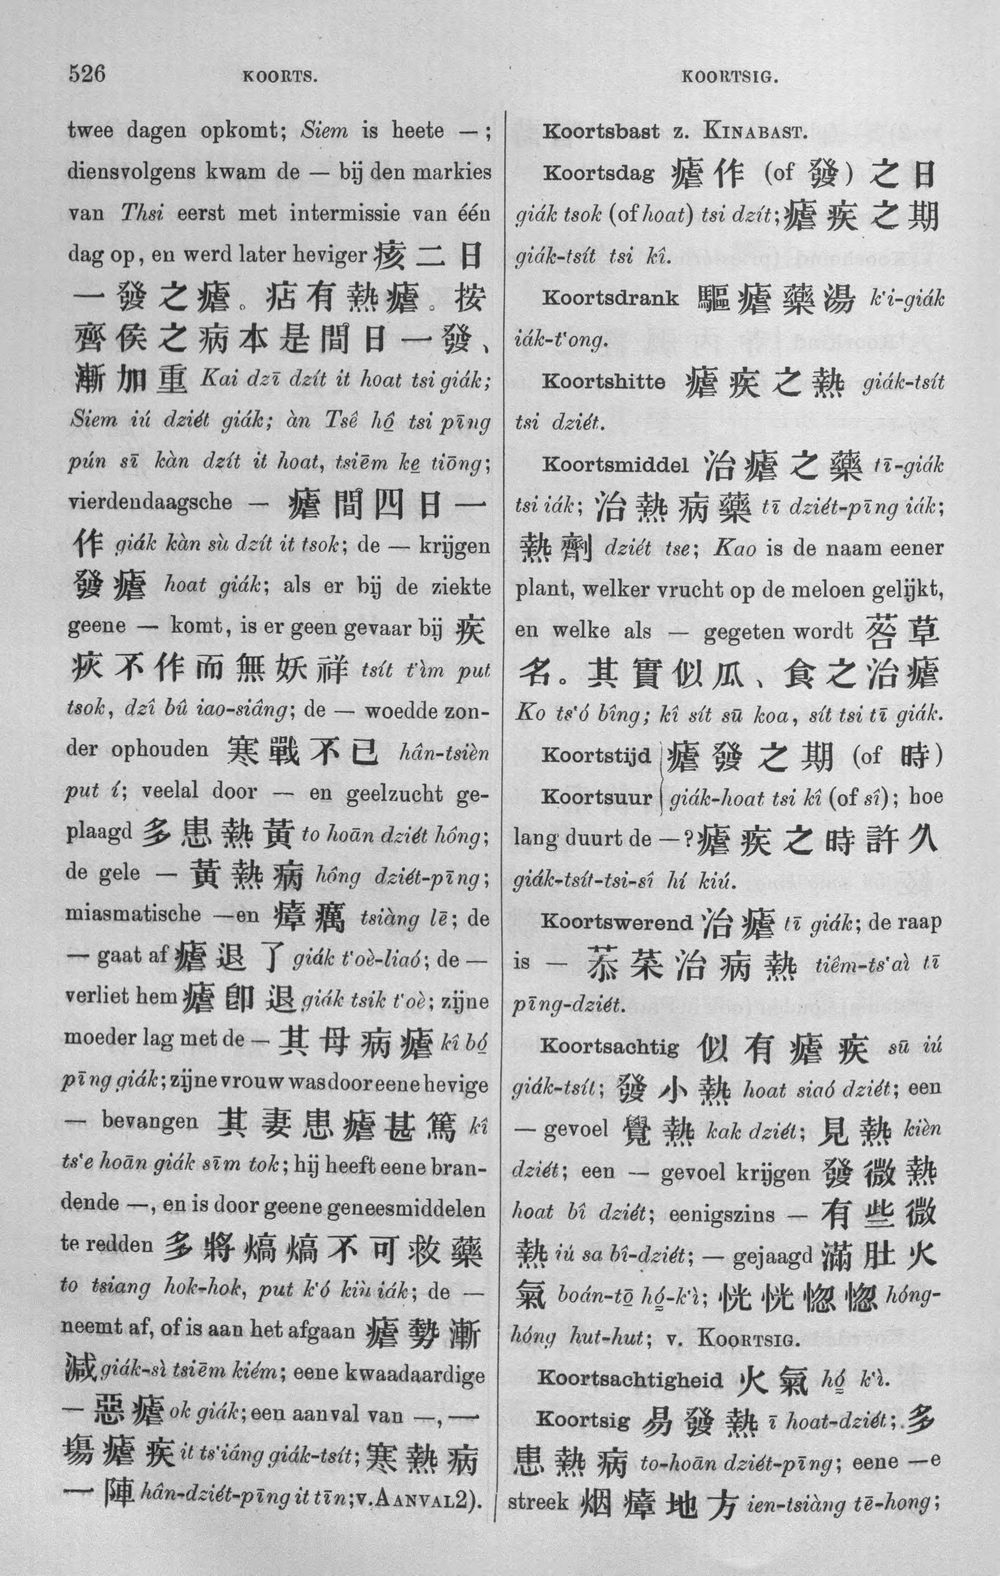 526
KOORTS.
KOORTSIG.
twee dagen opkomt; Siem is heete — ;
diensvolgens kwam de — bij den markies
van Thsi eerst met intermissie van één
dag op, en werd later heviger 痎二日
一發之瘧。痁有熱瘧。按
齊侯之病本是間日一發、
漸加重 Kai dzī dzít it hoat tsi giák;
Siem iú dziét giák; àn Tsê hô tsi pīng
pún sī kàn dzít it hoat, tsiēm ke tiōng;
vierdendaagsche — 瘧間四日一
作 giák kàn sù dzít it tsok; de — krijgen
發瘧 hoat giák; als er bij de ziekte
geene — komt, is er geen gevaar bij 疾
疢不作而無妖祥 tsít t'ìm put
tsok, dzî bû iao-siâng; de — woedde zon-
der ophouden 寒戰不已 hân-tsièn
put í; veelal door — en geelzucht ge-
plaagd 多患熱黃 to hoān dziét hông;
de gele — 黃熱病 hông dziét-pīng;
miasmatische —en 瘴癘 tsiàng lē; de
— gaat af 瘧退了 giák t'oè-liaó; de —
verliet hem 瘧卽退 giák tsik t'oè; zijne
moeder lag met de — 其母病瘧 kî bó
pīng giák; zijne vrouw was door eene hevige
— bevangen 其妻患瘧甚篤 kî
ts'e hoān giák sīm tok; hij heeft eene bran-
dende —, en is door geene geneesmiddelen
te redden 多將熇熇不可救藥
to tsiang hok-hok, put k'ó kiù iák; de —
neemt af, of is aan het afgaan 瘧勢漸
減 giák-sì tsiēm kiém; eene kwaadaardige
— 惡瘧 ok giák; een aanval van —, 一
塲瘧疾 it ts'iâng giák-tsít; 寒熱病
一陣 hân-dziét-pīng it tīn; v. AANVAL 2).
Koortsbast z. KINABAST.
Koortsdag 瘧作 (of 發) 之日
giák tsok (of hoat) tsi dzít; 瘧疾之期
giák-tsít tsi kî.
Koortsdrank 驅瘧藥湯 k'i-giák
iák-t'ong.
Koortshitte 瘧疾之熱 giák-tsít
tsi dziét.
Koortsmiddel 治瘧之藥 tī-giák
tsi iák; 治熱病藥 tī dziét-pīng iák;
熱劑 dziét tse; Kao is de naam eener
plant, welker vrucht op de meloen gelijkt,
en welke als — gegeten wordt 䓘草
名。其實似瓜、食之治瘧
Ko ts'ó bîng; kî sít sū koa, sít tsi tī giák.
Koortstijd 瘧發之期 (of 時)
Koortsuur giák-hoat tsi kî (of sî); hoe
lang duurt de — ? 瘧疾之時許久
giák-tsít-tsi-sî hí kiú.
Koortswerend 治瘧 tī giák; de raap
is — 菾菜治病熱 tiêm-ts'aì tī
pīng-dziét.
Koortsachtig 似有瘧疾 sū iú
giák-tsít; 發小熱 hoat siaó dziét; een
— gevoel 覺熱 kak dziét; 見熱 kièn
dziét; een — gevoel krijgen 發微熱
hoat bî dziét; eenigszins — 有些微
熱 iú sa bî-dziét; — gejaagd 滿肚火
氣 boán-tō hó-k'ì; 恍恍惚惚 hóng-
hóng hut-hut; v. KOORTSIG.
Koortsachtigheid 火氣 hó k'ì.
Koortsig 易發熱 ī hoat-dziét; 多
患熱病 to-hoān dziét-pīng; eene —e
streek 烟瘴地方 ien-tsiàng tē-hong;